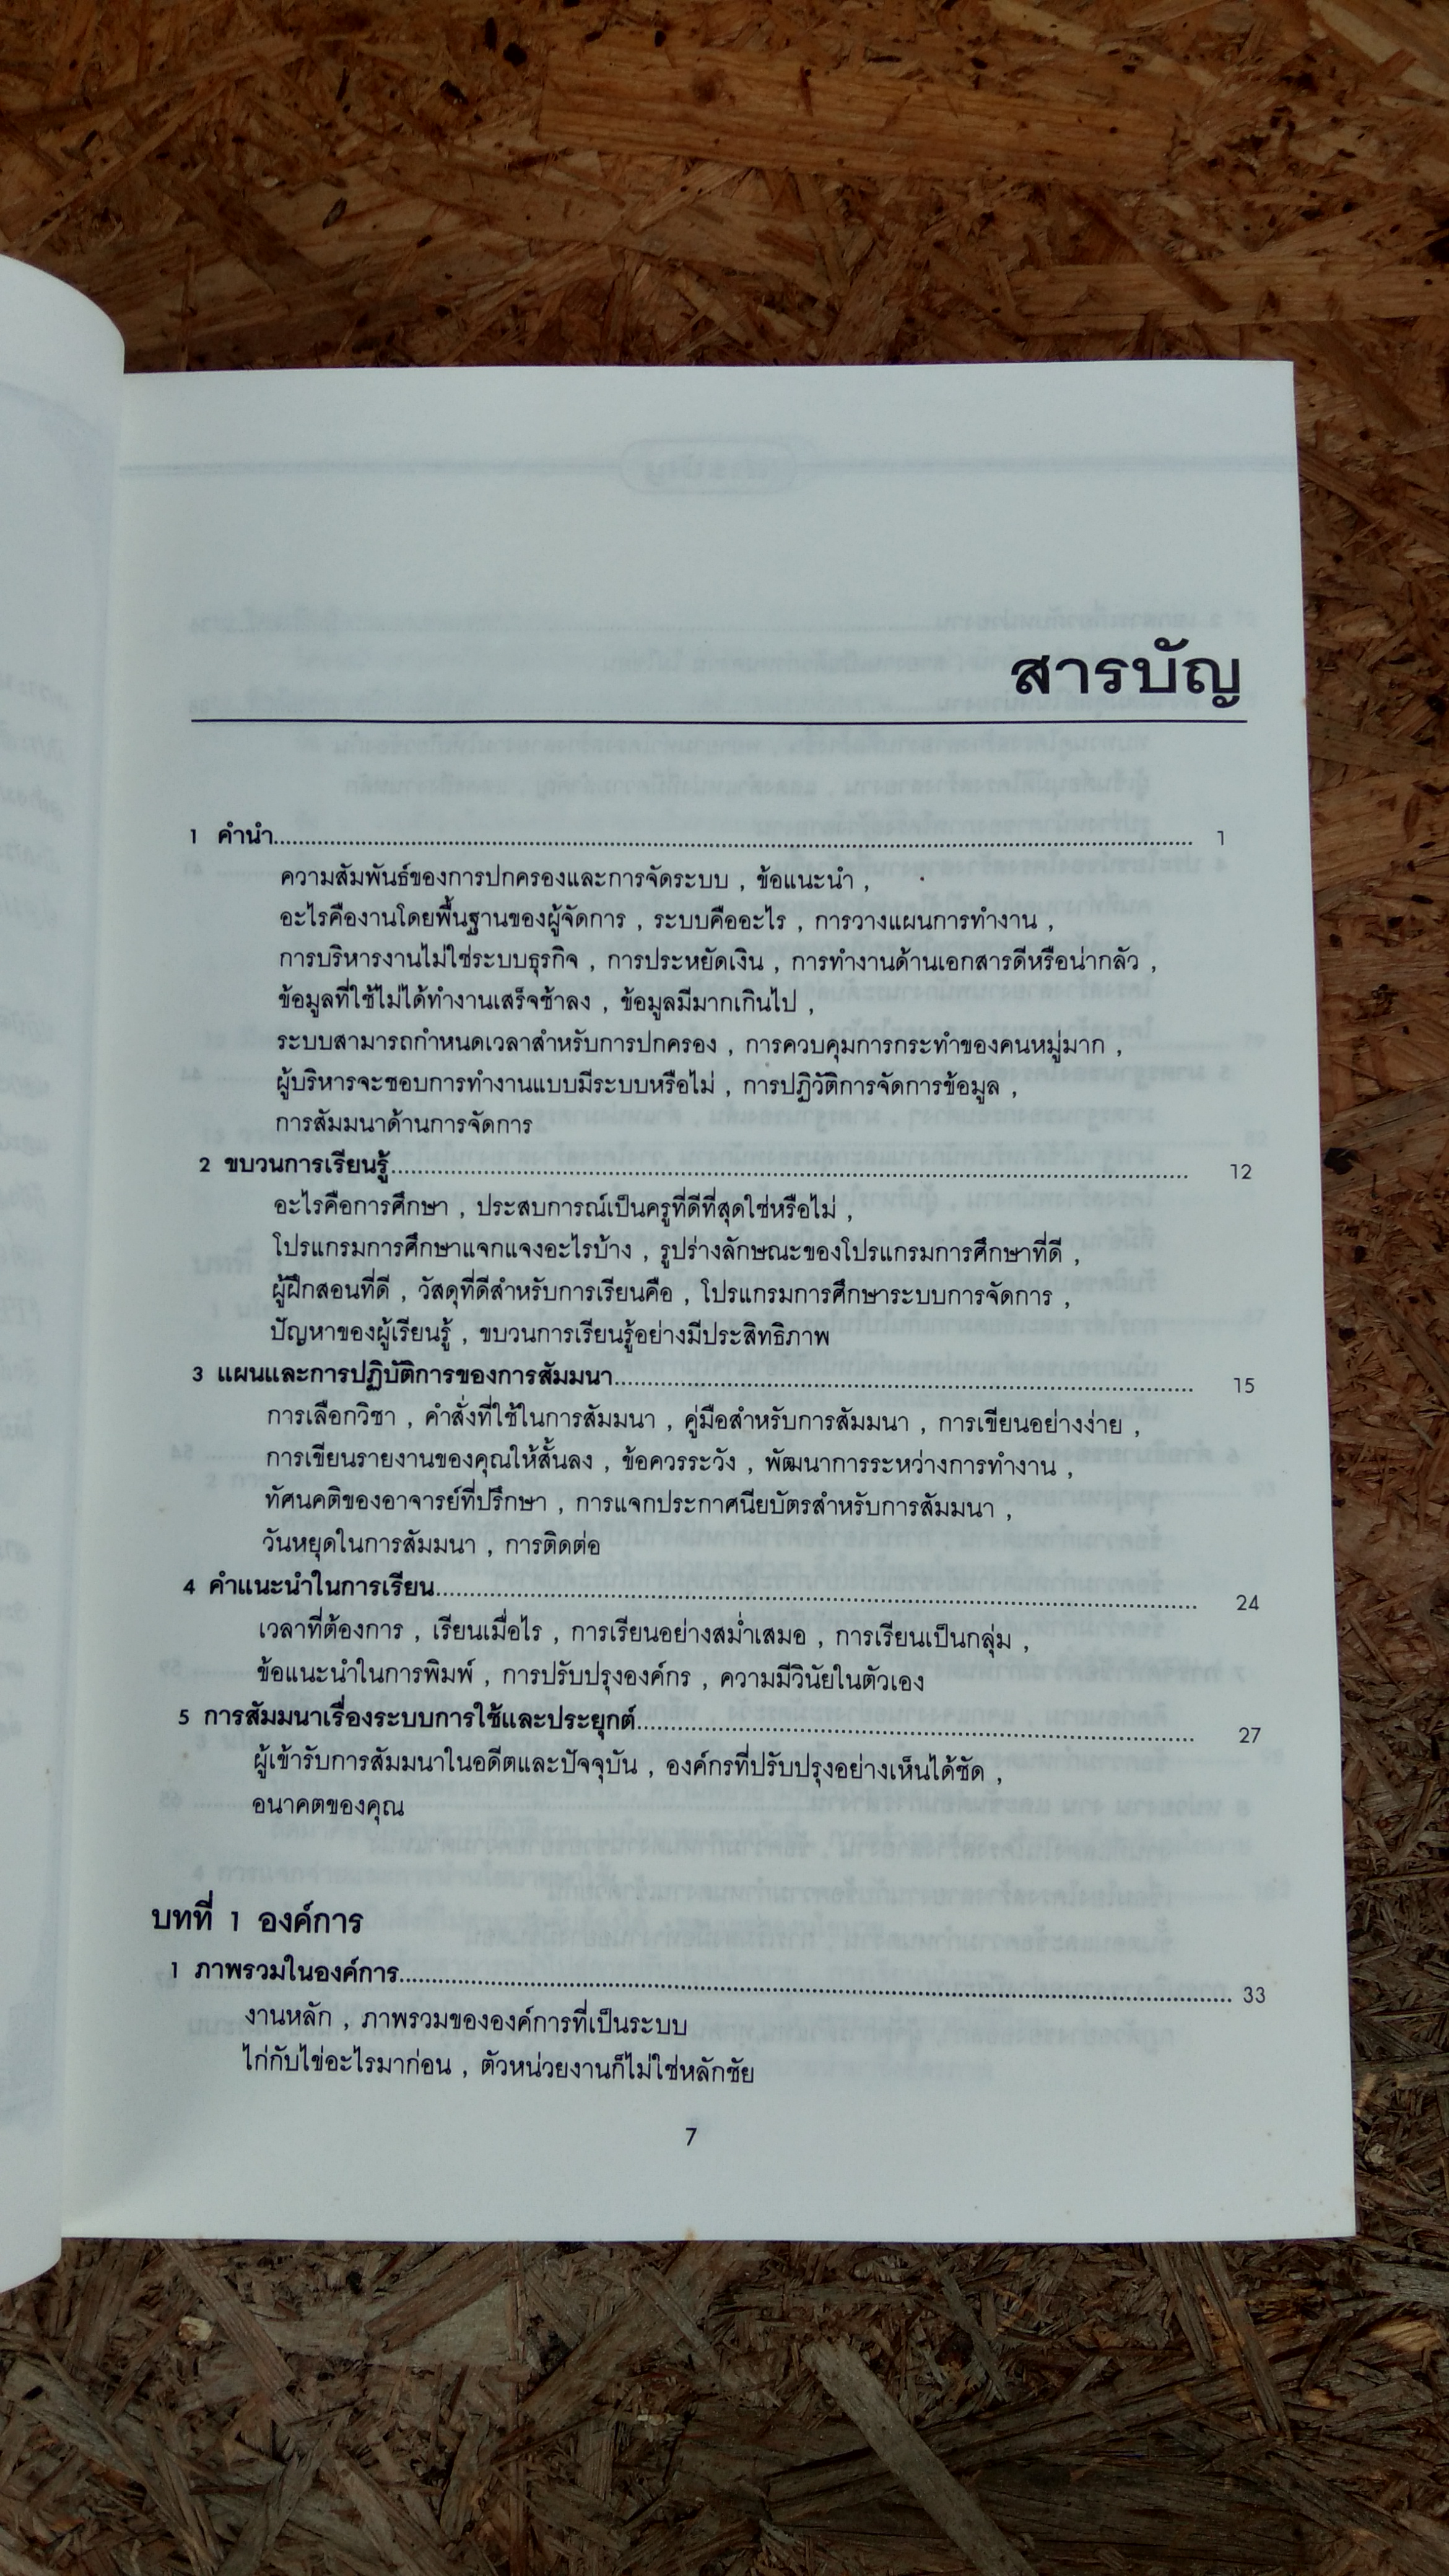 สารบัญ
1 คำนำ........................................ 1
ความสัมพันธ์ของการปกครองและการจัดระบบ , ข้อแนะนำ ,
อะไรคืองานโดยพื้นฐานของผู้จัดการ , ระบบคืออะไร , การวางแผนการทำงาน ,
การบริหารงานไม่ใช่ระบบธุรกิจ , การประหยัดเงิน , การทำงานด้านเอกสารดีหรือน่ากลัว ,
ข้อมูลที่ใช้ไม่ได้ทำงานเสร็จช้าลง , ข้อมูลมีมากเกินไป ,
ระบบสามารถกำหนดเวลาสำหรับการปกครอง , การควบคุมการกระทำของคนหมู่มาก ,
ผู้บริหารจะชอบการทำงานแบบมีระบบหรือไม่ , การปฏิวัติการจัดการข้อมูล ,
การสัมมนาด้านการจัดการ
2 ขบวนการเรียนรู้........................................ 12
อะไรคือการศึกษา , ประสบการณ์เป็นครูที่ดีที่สุดใช่หรือไม่ ,
โปรแกรมการศึกษาแจกแจงอะไรบ้าง , รูปร่างลักษณะของโปรแกรมการศึกษาที่ดี ,
ผู้ฝึกสอนที่ดี , วัสดุที่ดีสำหรับการเรียนคือ , โปรแกรมการศึกษาระบบการจัดการ ,
ปัญหาของผู้เรียนรู้ , ขบวนการเรียนรู้อย่างมีประสิทธิภาพ
3 แผนและการปฏิบัติการของการสัมมนา........................................ 15
การเลือกวิชา , คำสั่งที่ใช้ในการสัมมนา , คู่มือสำหรับการสัมมนา , การเขียนอย่างง่าย ,
การเขียนรายงานของคุณให้สั้นลง , ข้อควรระวัง , พัฒนาการระหว่างการทำงาน ,
ทัศนคติของอาจารย์ที่ปรึกษา , การแจกประกาศนียบัตรสำหรับการสัมมนา ,
วันหยุดในการสัมมนา , การติดต่อ
4 คำแนะนำในการเรียน........................................ 24
เวลาที่ต้องการ , เรียนเมื่อไร , การเรียนอย่างสม่ำเสมอ , การเรียนเป็นกลุ่ม ,
ข้อแนะนำในการพิมพ์ , การปรับปรุงองค์กร , ความมีวินัยในตัวเอง
5 การสัมมนาเรื่องระบบการใช้และประยุกต์........................................ 27
ผู้เข้ารับการสัมมนาในอดีตและปัจจุบัน , องค์กรที่ปรับปรุงอย่างเห็นได้ชัด ,
อนาคตของคุณ
บทที่ 1 องค์การ
1 ภาพรวมในองค์การ........................................ 33
งานหลัก , ภาพรวมขององค์การที่เป็นระบบ
ไก่กับไข่อะไรมาก่อน , ตัวหน่วยงานก็ไม่ใช่หลักชัย
7